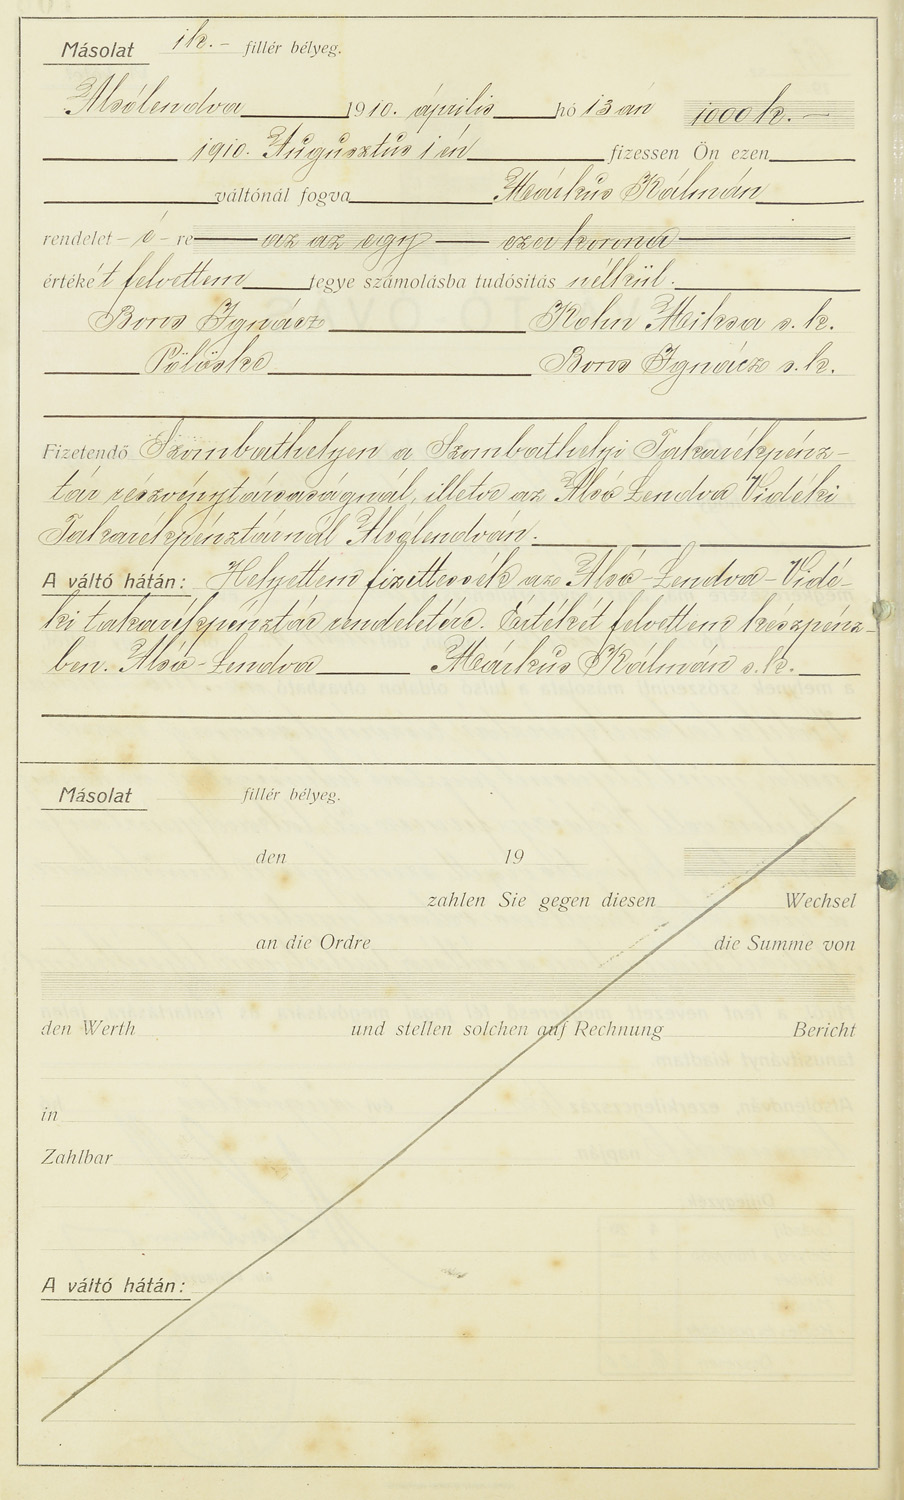 Másolat 1 k. – fillér bélyeg.
Alsólendva 1910. április hó 13 án 1000 k. –
1910. Augusztus 1 én fizessen Ön ezen
váltónál fogva Márkus Kálmán
rendelet – é – re az az egy ezer korona
értéké t felvettem tegye számolásba tudósítás nélkül.
Boros Ignácz Kohn Miksa s. k.
Pölöske Boros Ignácz s. k.
Fizetendő Szombathelyen a Szombathelyi Takarékpénz-
tár részvénytársaságnál, illetve az Alsó Lendva Vidéki
Takarékpénztárnál Alsólendván.
A váltó hátán: Helyettem fizettessék az Alsó-Lendva-Vidé-
ki takarékpénztár rendeletére. Értékét felvettem készpénz-
ben. Alsó-Lendva Márkus Kálmán s. k.
Másolat fillér bélyeg.
den 19
zahlen Sie gegen diesen Wechsel
an die Ordre die Summe von
den Werth und stellen solchen auf Rechnung Bericht
in
Zahlbar
A váltó hátán: